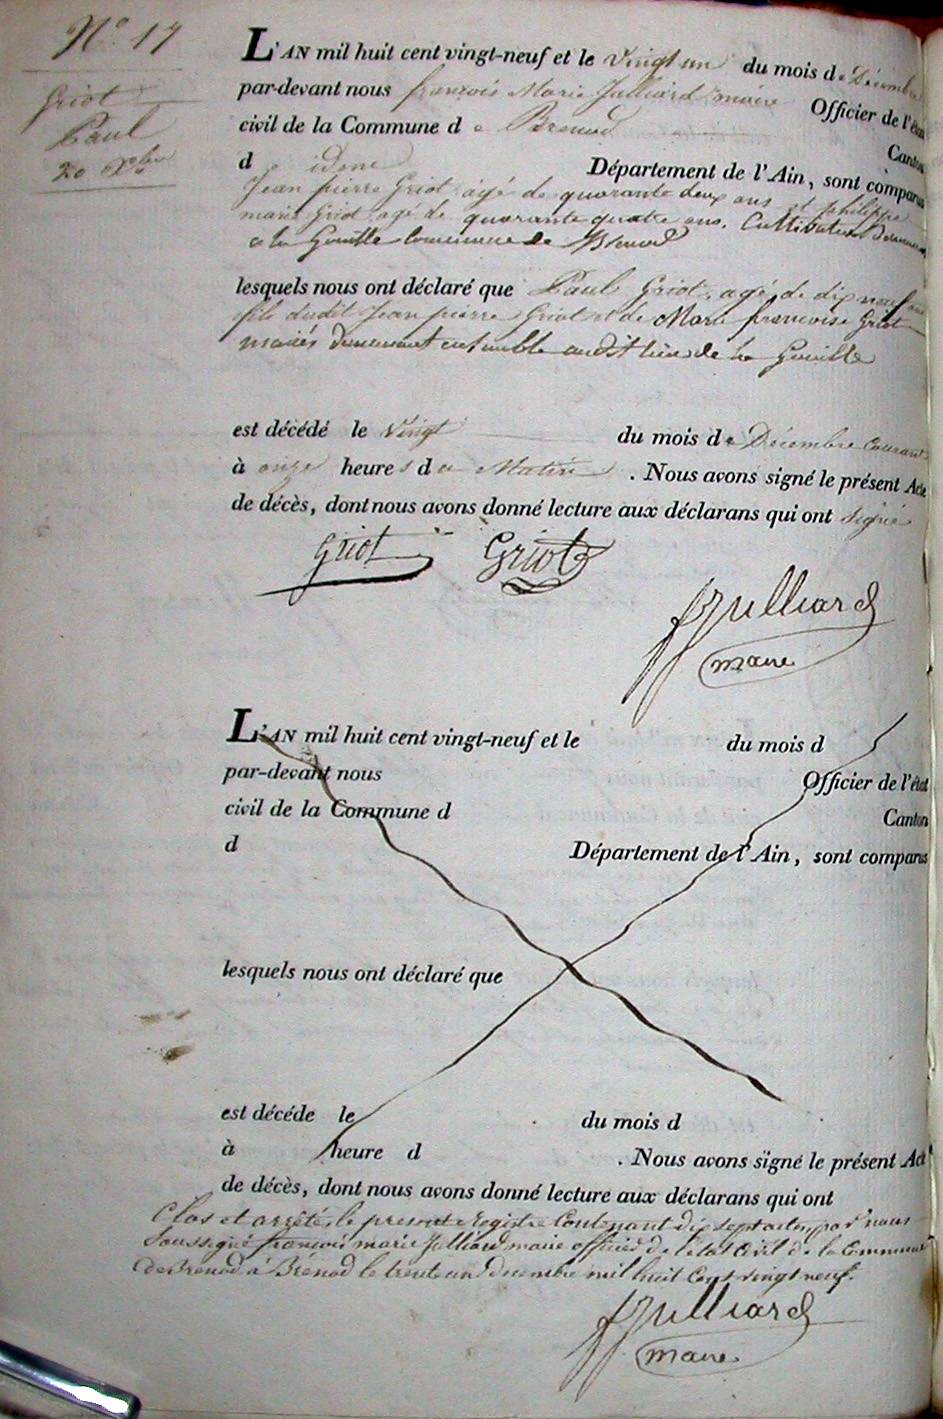 N° 17
Griot
Paul
20 Xbre
L'AN mil huit cent vingt-neuf et le vingt un du mois de Décembre
par-devant nous françois Marie Julliard maire Officier de l'état
civil de la Commune de Brenod Canton
d idem Département de l'Ain, sont comparus
Jean pierre Griot agé de quarante deux ans et philippe
marie Griot agé de quarante quatre ans, Cultivateurs Demeurant
a la Gouille Commune de Brenod
lesquels nous ont déclaré que Paul Griot, agé de dix neuf ans
fils dudit Jean pierre Griot et de Marie françoise Griot
mariés demeurant ensemble audit lieu de la Gouille
est décédé le vingt du mois de Décembre courant
à onze heures du Matin. Nous avons signé le présent Acte
de décès, dont nous avons donné lecture aux déclarans qui ont signé
Griot Griot
fJulliard
maire
L'AN mil huit cent vingt-neuf et le du mois d
par-devant nous Officier de l'état
civil de la Commune d Canton
d Département de l'Ain, sont comparus
lesquels nous ont déclaré que
est décéde le du mois d
à heure d . Nous avons signé le présent Act
de décès, dont nous avons donné lecture aux déclarans qui ont
Clos et arrêté, le present Registre Contenant dix sept actes, par nous
Soussigné françois marie Julliard maire officier de l'état Civil de la Commune
de Brenod, à Brénod le trente un Decembre mil huit Cent vingt neuf.
fJulliard
maire